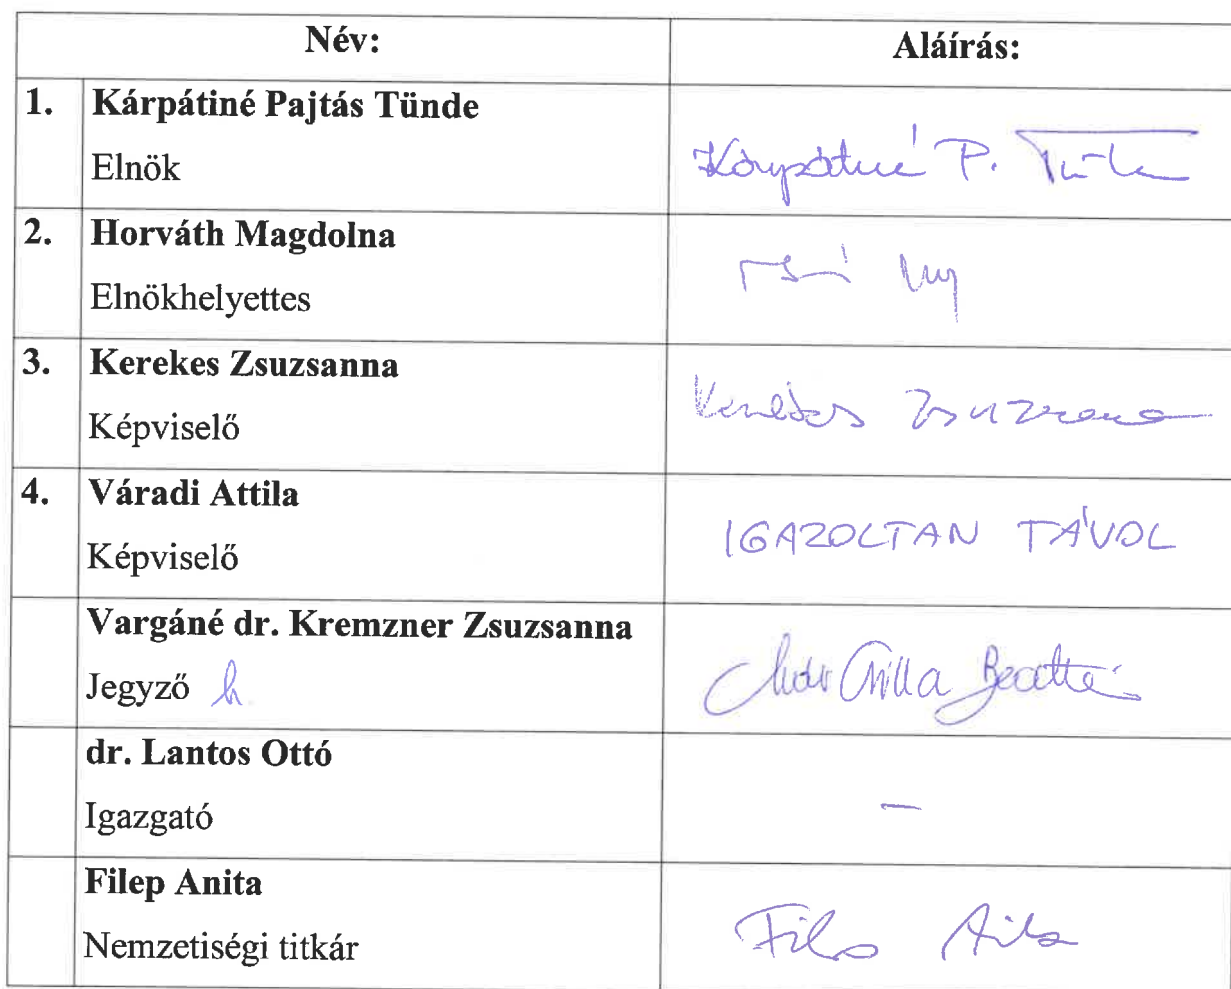 Név: Aláírás:
1. Kárpátiné Pajtás Tünde
Elnök
Kárpátiné P. Tünde
2. Horváth Magdolna
Elnökhelyettes
3. Kerekes Zsuzsanna
Képviselő
Kerekes Zsuzsanna
4. Váradi Attila
Képviselő
IGAZOLTAN TÁVOL
Vargáné dr. Kremzner Zsuzsanna
Jegyző h.
Csilla
dr. Lantos Ottó
Igazgató
–
Filep Anita
Nemzetiségi titkár
Filep Anita